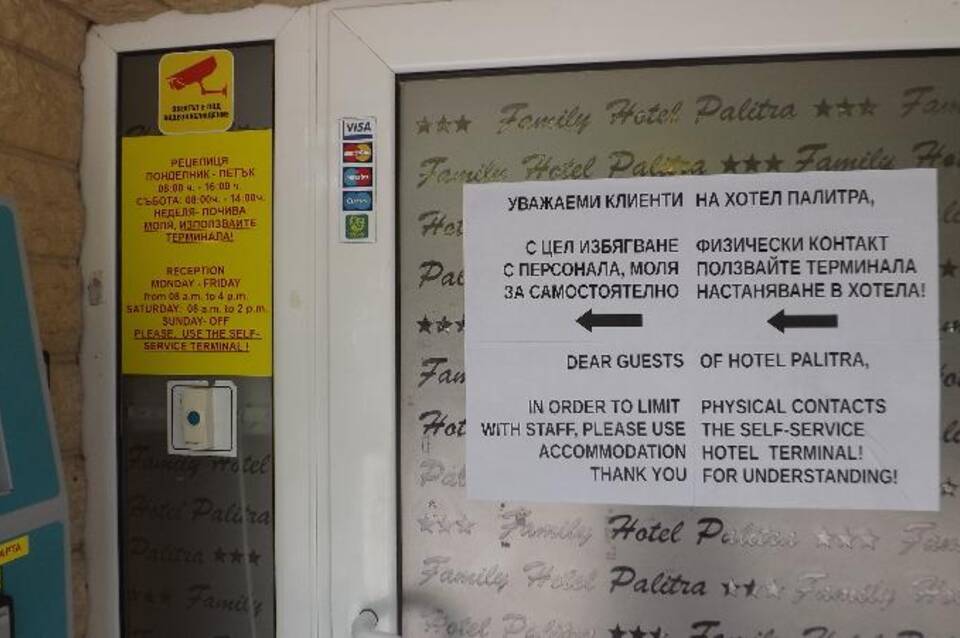 ОБЕКТЪТ Е ПОД
ВИДЕОНАБЛЮДЕНИЕ
РЕЦЕПЦИЯ
ПОНДЕЛНИК - ПЕТЪК
08:00 ч. - 16:00 ч.
СЪБОТА: 08:00ч. - 14:00ч.
НЕДЕЛЯ- ПОЧИВА
МОЛЯ, ИЗПОЛЗВАЙТЕ
ТЕРМИНАЛА!
RECEPTION
MONDAY - FRIDAY
from 08 a.m. to 4 p.m.
SATURDAY: 08 a.m. to 2 p.m.
SUNDAY- OFF
PLEASE, USE THE SELF-
SERVICE TERMINAL !
VISA
УВАЖАЕМИ КЛИЕНТИ НА ХОТЕЛ ПАЛИТРА,
С ЦЕЛ ИЗБЯГВАНЕ ФИЗИЧЕСКИ КОНТАКТ
С ПЕРСОНАЛА, МОЛЯ ПОЛЗВАЙТЕ ТЕРМИНАЛА
ЗА САМОСТОЯТЕЛНО НАСТАНЯВАНЕ В ХОТЕЛА!
DEAR GUESTS OF HOTEL PALITRA,
IN ORDER TO LIMIT PHYSICAL CONTACTS
WITH STAFF, PLEASE USE THE SELF-SERVICE
ACCOMMODATION HOTEL TERMINAL!
THANK YOU FOR UNDERSTANDING!
Family Hotel Palitra
Family Hotel Palitra Family
Family Hotel Palitra
Family Hotel Palitra
Family Hotel
Palitra
Palitra
Family